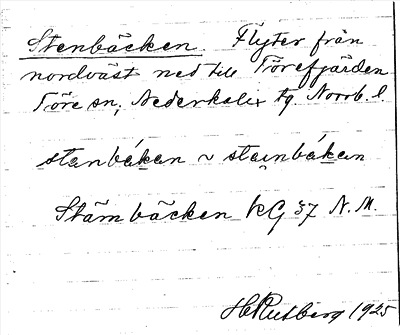 Stenbäcken. Flyter från
nordväst ned till Törefjärden
Töre sn, Nederkalix tg. Norrb. l.
stanbäkan ~ stainbäkan
Stämbäcken kG 37 N. M.
H Rutberg 1925